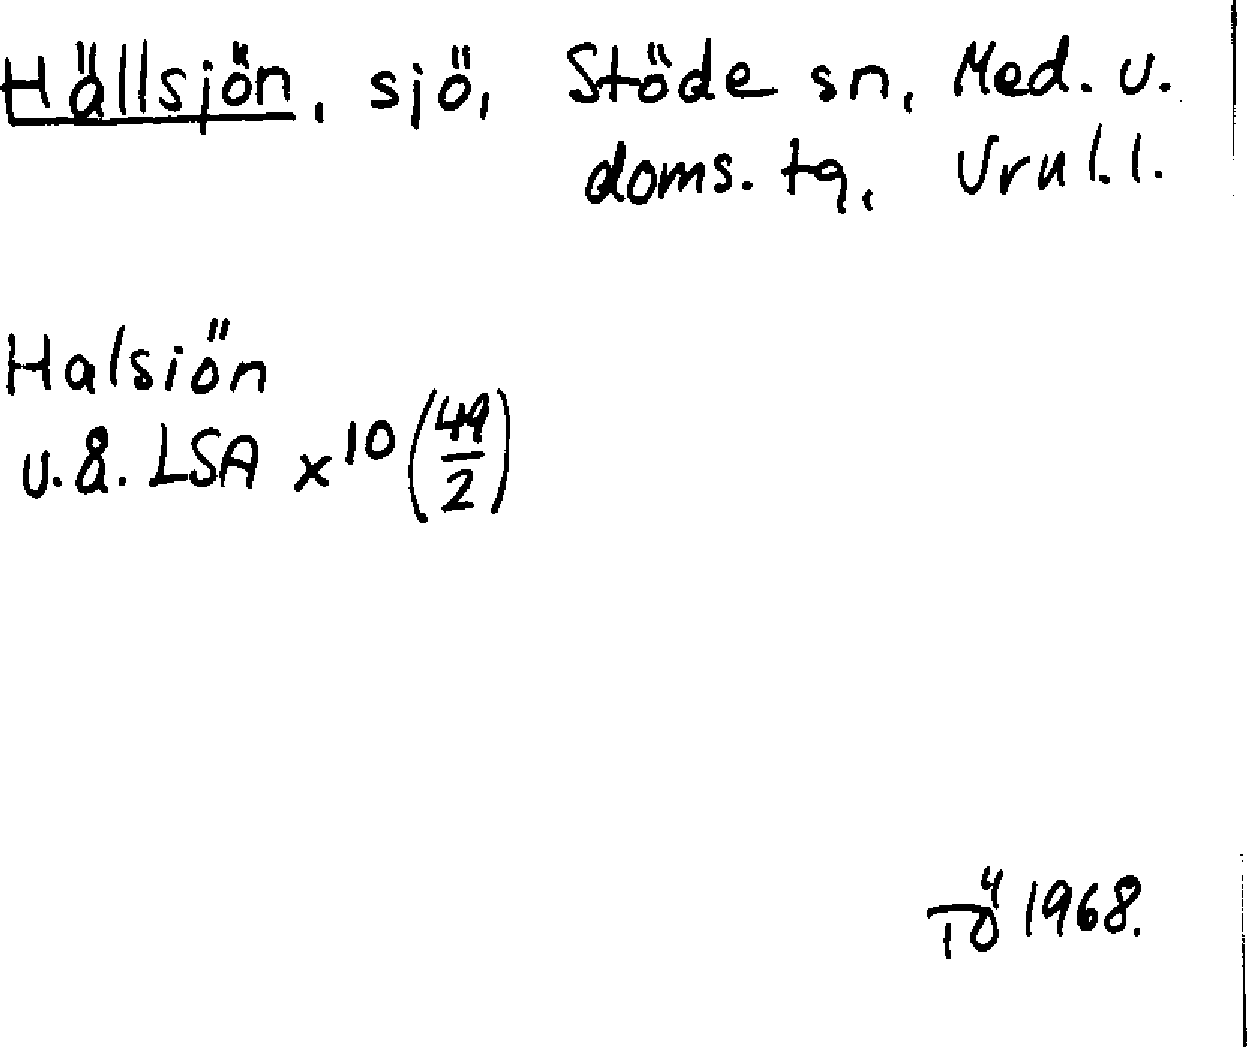 Hällsjön, sjö, Stöde sn, Med. v.
doms. tg, Vrnl.l.
Halsiön
u.å. LSA x10 (49/2)
TÖ 1968.